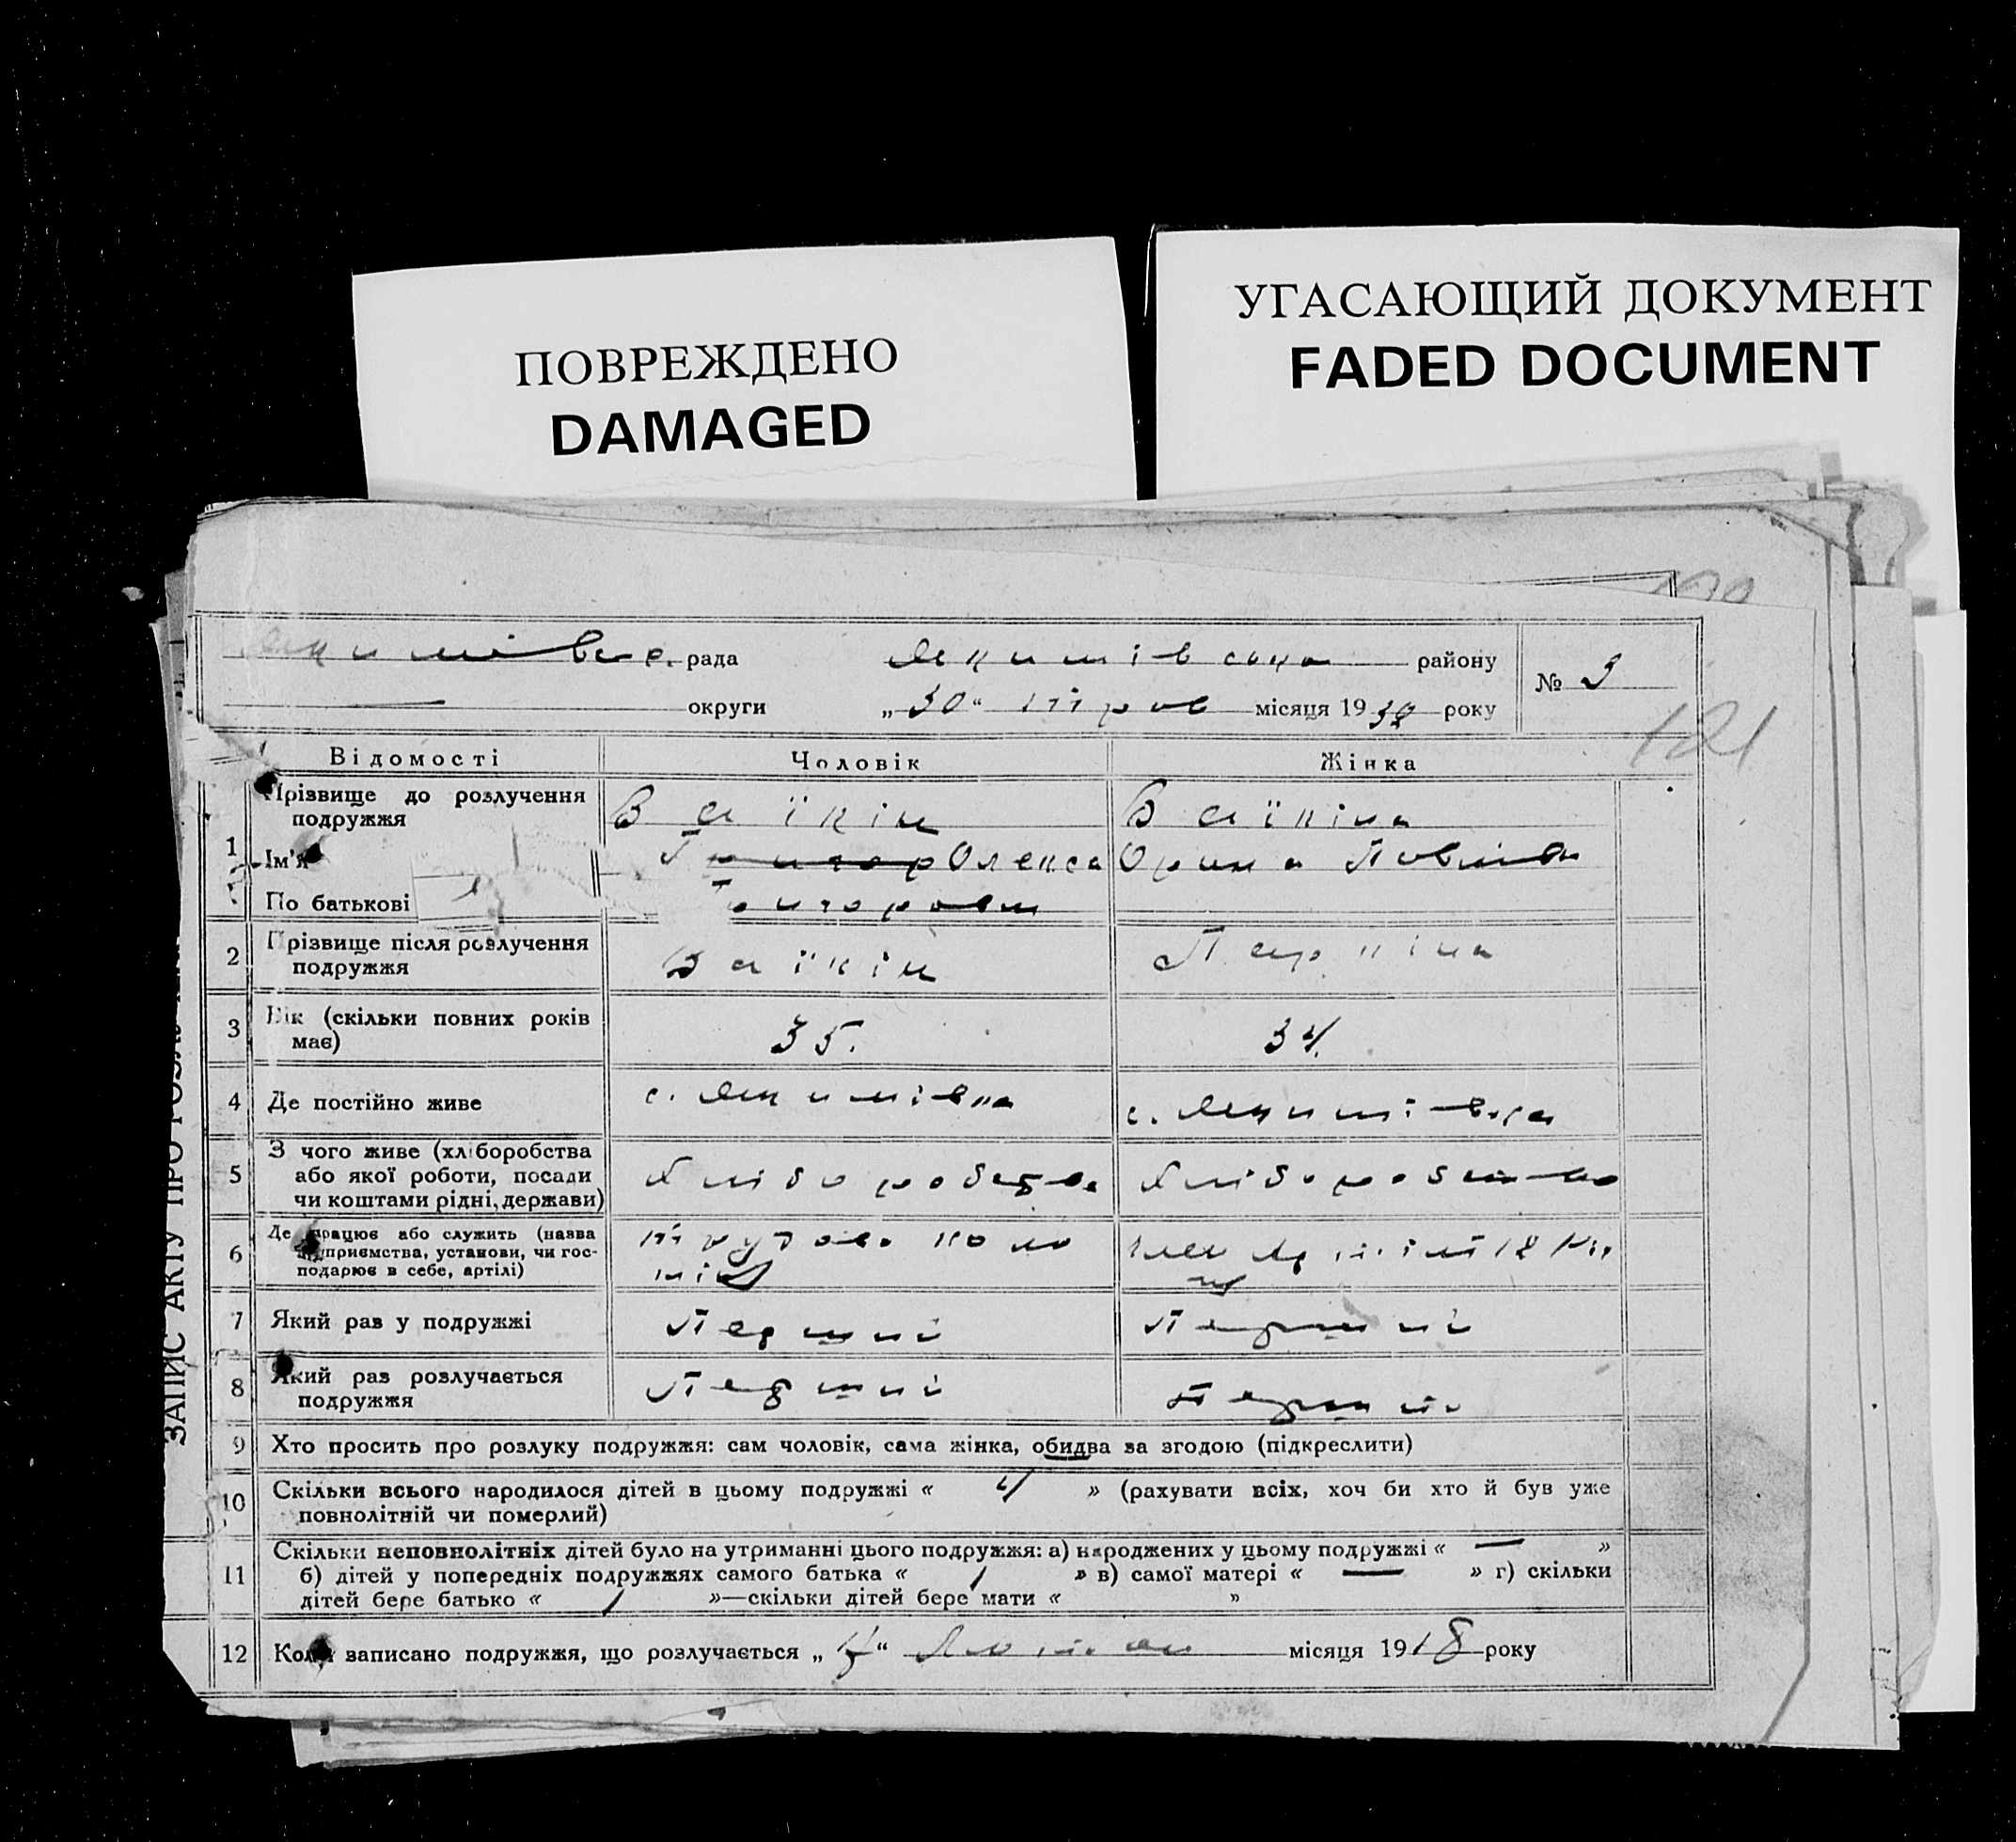 УГАСАЮЩИЙ ДОКУМЕНТ
FADED DOCUMENT
ПОВРЕЖДЕНО
DAMAGED
рада Якимівського району № 3
округи „30“ місяця 19 року
121
Відомості Чоловік Жінка
1 Прізвище до розлучення подружжя Ваїкін Ваїкіна
Ім'я Григор Олекса Орина
По батькові Григорович
2 Прізвище після розлучення
подружжя Ваїкін
3 Вік (скільки повних років
має) 35. 34.
4 Де постійно живе с. Якимівка с. Якимівка
5 З чого живе (хліборобства
або якої роботи, посади
чи коштами рідні, держави) Хліборобство Хліборобство
6 Де працює або служить (назва
підприємства, установи, чи гос-
подарює в себе, артілі)
7 Який раз у подружжі Перший Перший
8 Який раз розлучається
подружжя Перший Перший
9 Хто просить про розлуку подружжя: сам чоловік, сама жінка, обидва за згодою (підкреслити)
10 Скільки всього народилося дітей в цьому подружжі « 4 » (рахувати всіх, хоч би хто й був уже
повнолітній чи померлий)
11 Скільки неповнолітніх дітей було на утриманні цього подружжя: а) народжених у цьому подружжі « — »
б) дітей у попередніх подружжях самого батька « » в) самої матері « — » г) скільки
дітей бере батько « »—скільки дітей бере мати « »
12 Коли записано подружжя, що розлучається „ “ місяця 1918 року
ЗАПИС АКТУ ПРО